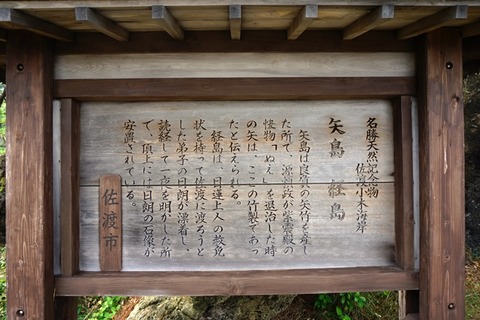 名勝天然記念物
佐渡小木海岸
矢島 経島
矢島は良質の矢竹を産し
た所で、源頼政が紫宸殿の
怪物「ぬえ」を退治した時
の矢は、ここの竹製であっ
たと伝えられる。
経島は、日蓮上人の赦免
状を持って佐渡に渡ろうと
した弟子の日朗が漂着し、
読経して一夜を明かした所
で、頂上には日朗の石像が
安置されている。
佐渡市